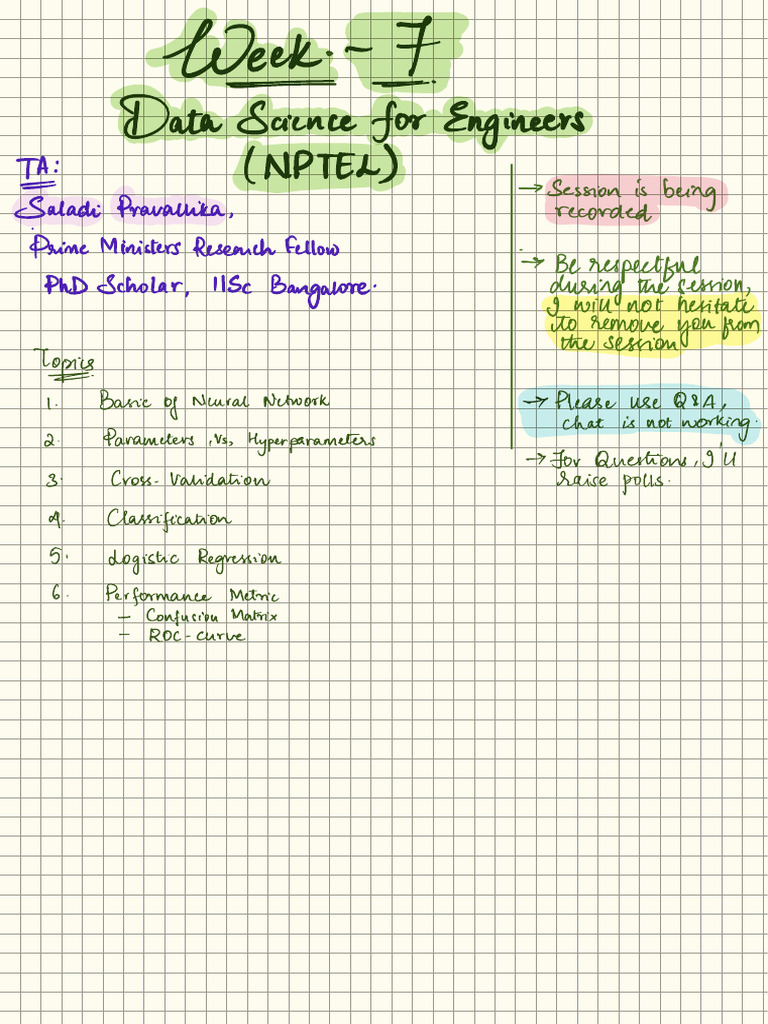 Week - 7
Data Science for Engineers
(NPTEL)
TA:
Saladi Pravallika,
Prime Ministers Research Fellow
PhD Scholar, IISc Bangalore.
→ Session is being
recorded
→ Be respectful
during the session,
I will not hesitate
to remove you from
the session
→ Please use Q&A,
chat is not working.
→ For Questions, I'll
raise polls.
Topics
1. Basic of Neural Network
2. Parameters Vs, Hyperparameters
3. Cross-Validation
4. Classification
5. Logistic Regression
6. Performance Metric
– Confusion Matrix
– ROC-curve